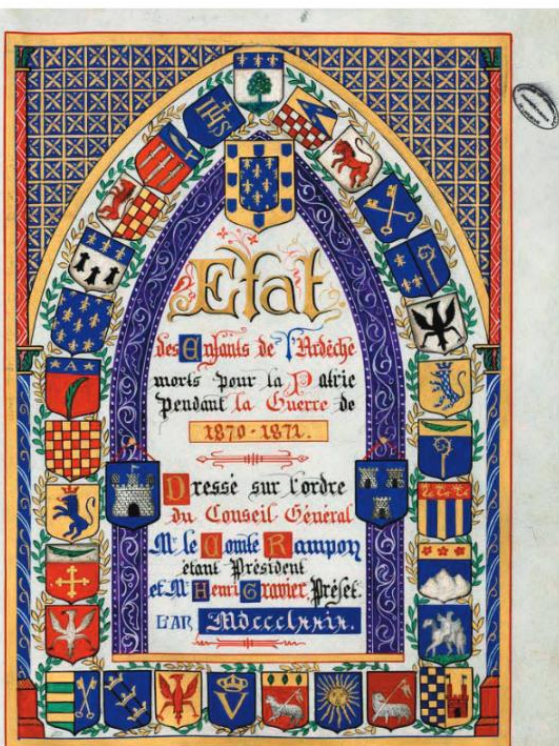 IHS
Etat
des Enfants de l'Ardèche
morts pour la Patrie
pendant la Guerre de
1870-1871.
Dressé sur l'ordre
du Conseil Général
Mr. le Comte Rampon
étant Président
et Mr. Henri Gravier, Préfet.
L'AN Mdccclxxix.
A
V